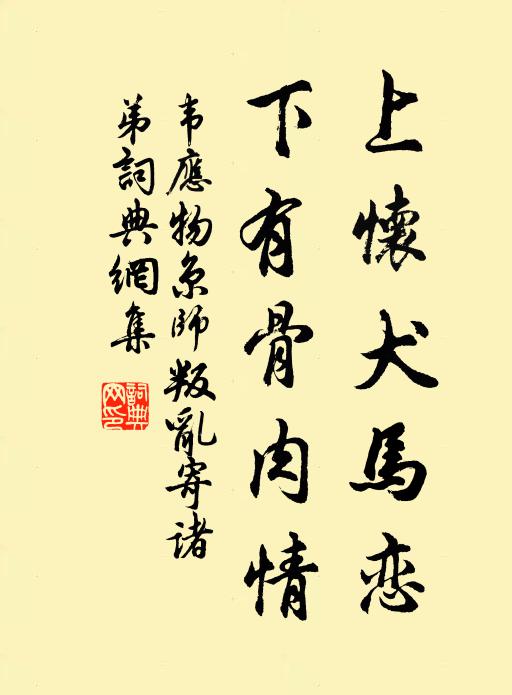 上懷犬馬恋
下有骨肉情
韦應物京師叛亂寄諸
弟詞典網集
詞典
网印